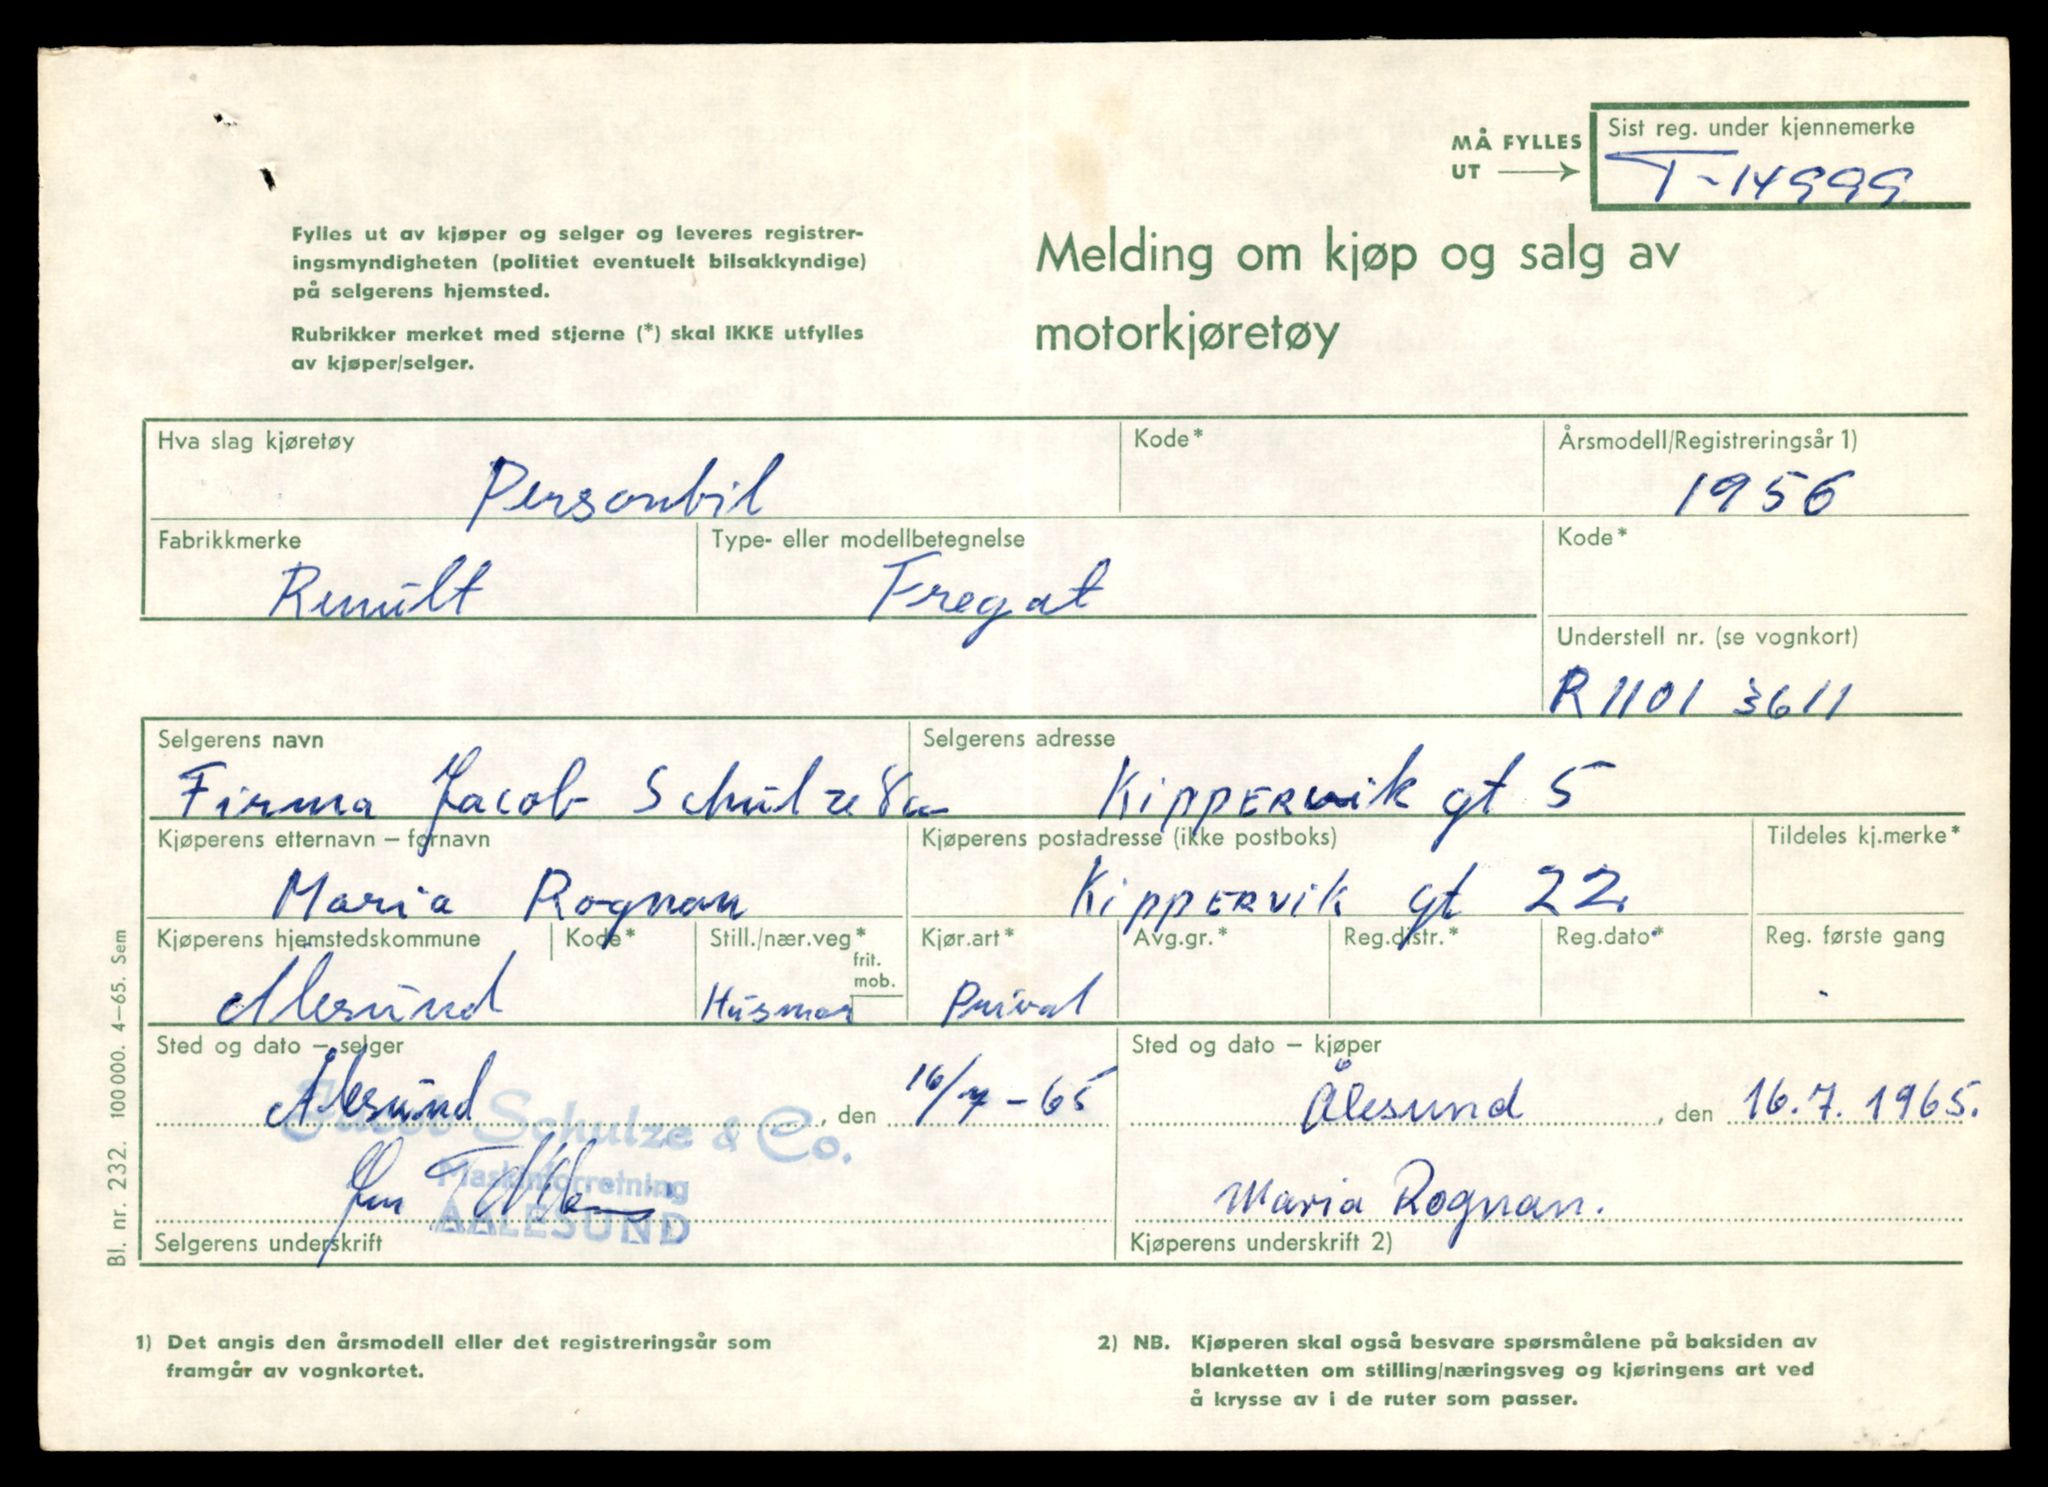 MÅ FYLLES
UT
Sist reg. under kjennemerke
T-14999
Fylles ut av kjøper og selger og leveres registrer-
ingsmyndigheten (politiet eventuelt bilsakkyndige)
på selgerens hjemsted.
Rubrikker merket med stjerne (*) skal IKKE utfylles
av kjøper/selger.
Melding om kjøp og salg av
motorkjøretøy
Hva slag kjøretøy
Kode*
Årsmodell/Registreringsår 1)
Personbil
1956
Fabrikkmerke
Type- eller modellbetegnelse
Kode*
Renult
Fregat
Understell nr. (se vognkort)
R 1101 3611
Selgerens navn
Selgerens adresse
Firma Jacob Schulze & Co
Kippervik gt 5
Kjøperens etternavn – fornavn
Kjøperens postadresse (ikke postboks)
Tildeles kj.merke*
Maria Rognan
Kippervik gt 22.
Kjøperens hjemstedskommune
Kode*
Still./nær.veg*
frit.
mob.
Kjør.art*
Avg.gr.*
Reg.distr.*
Reg.dato*
Reg. første gang
Ålesund
Husmor
Privat
Sted og dato – selger
Sted og dato – kjøper
Ålesund , den 16/7-65
Ålesund , den 16.7.1965.
Jacob Schulze & Co.
Maskinforretning
AALESUND
Maria Rognan.
Selgerens underskrift
Kjøperens underskrift 2)
Bl. nr. 232. 100 000. 4–65. Sem
1) Det angis den årsmodell eller det registreringsår som
framgår av vognkortet.
2) NB. Kjøperen skal også besvare spørsmålene på baksiden av
blanketten om stilling/næringsveg og kjøringens art ved
å krysse av i de ruter som passer.